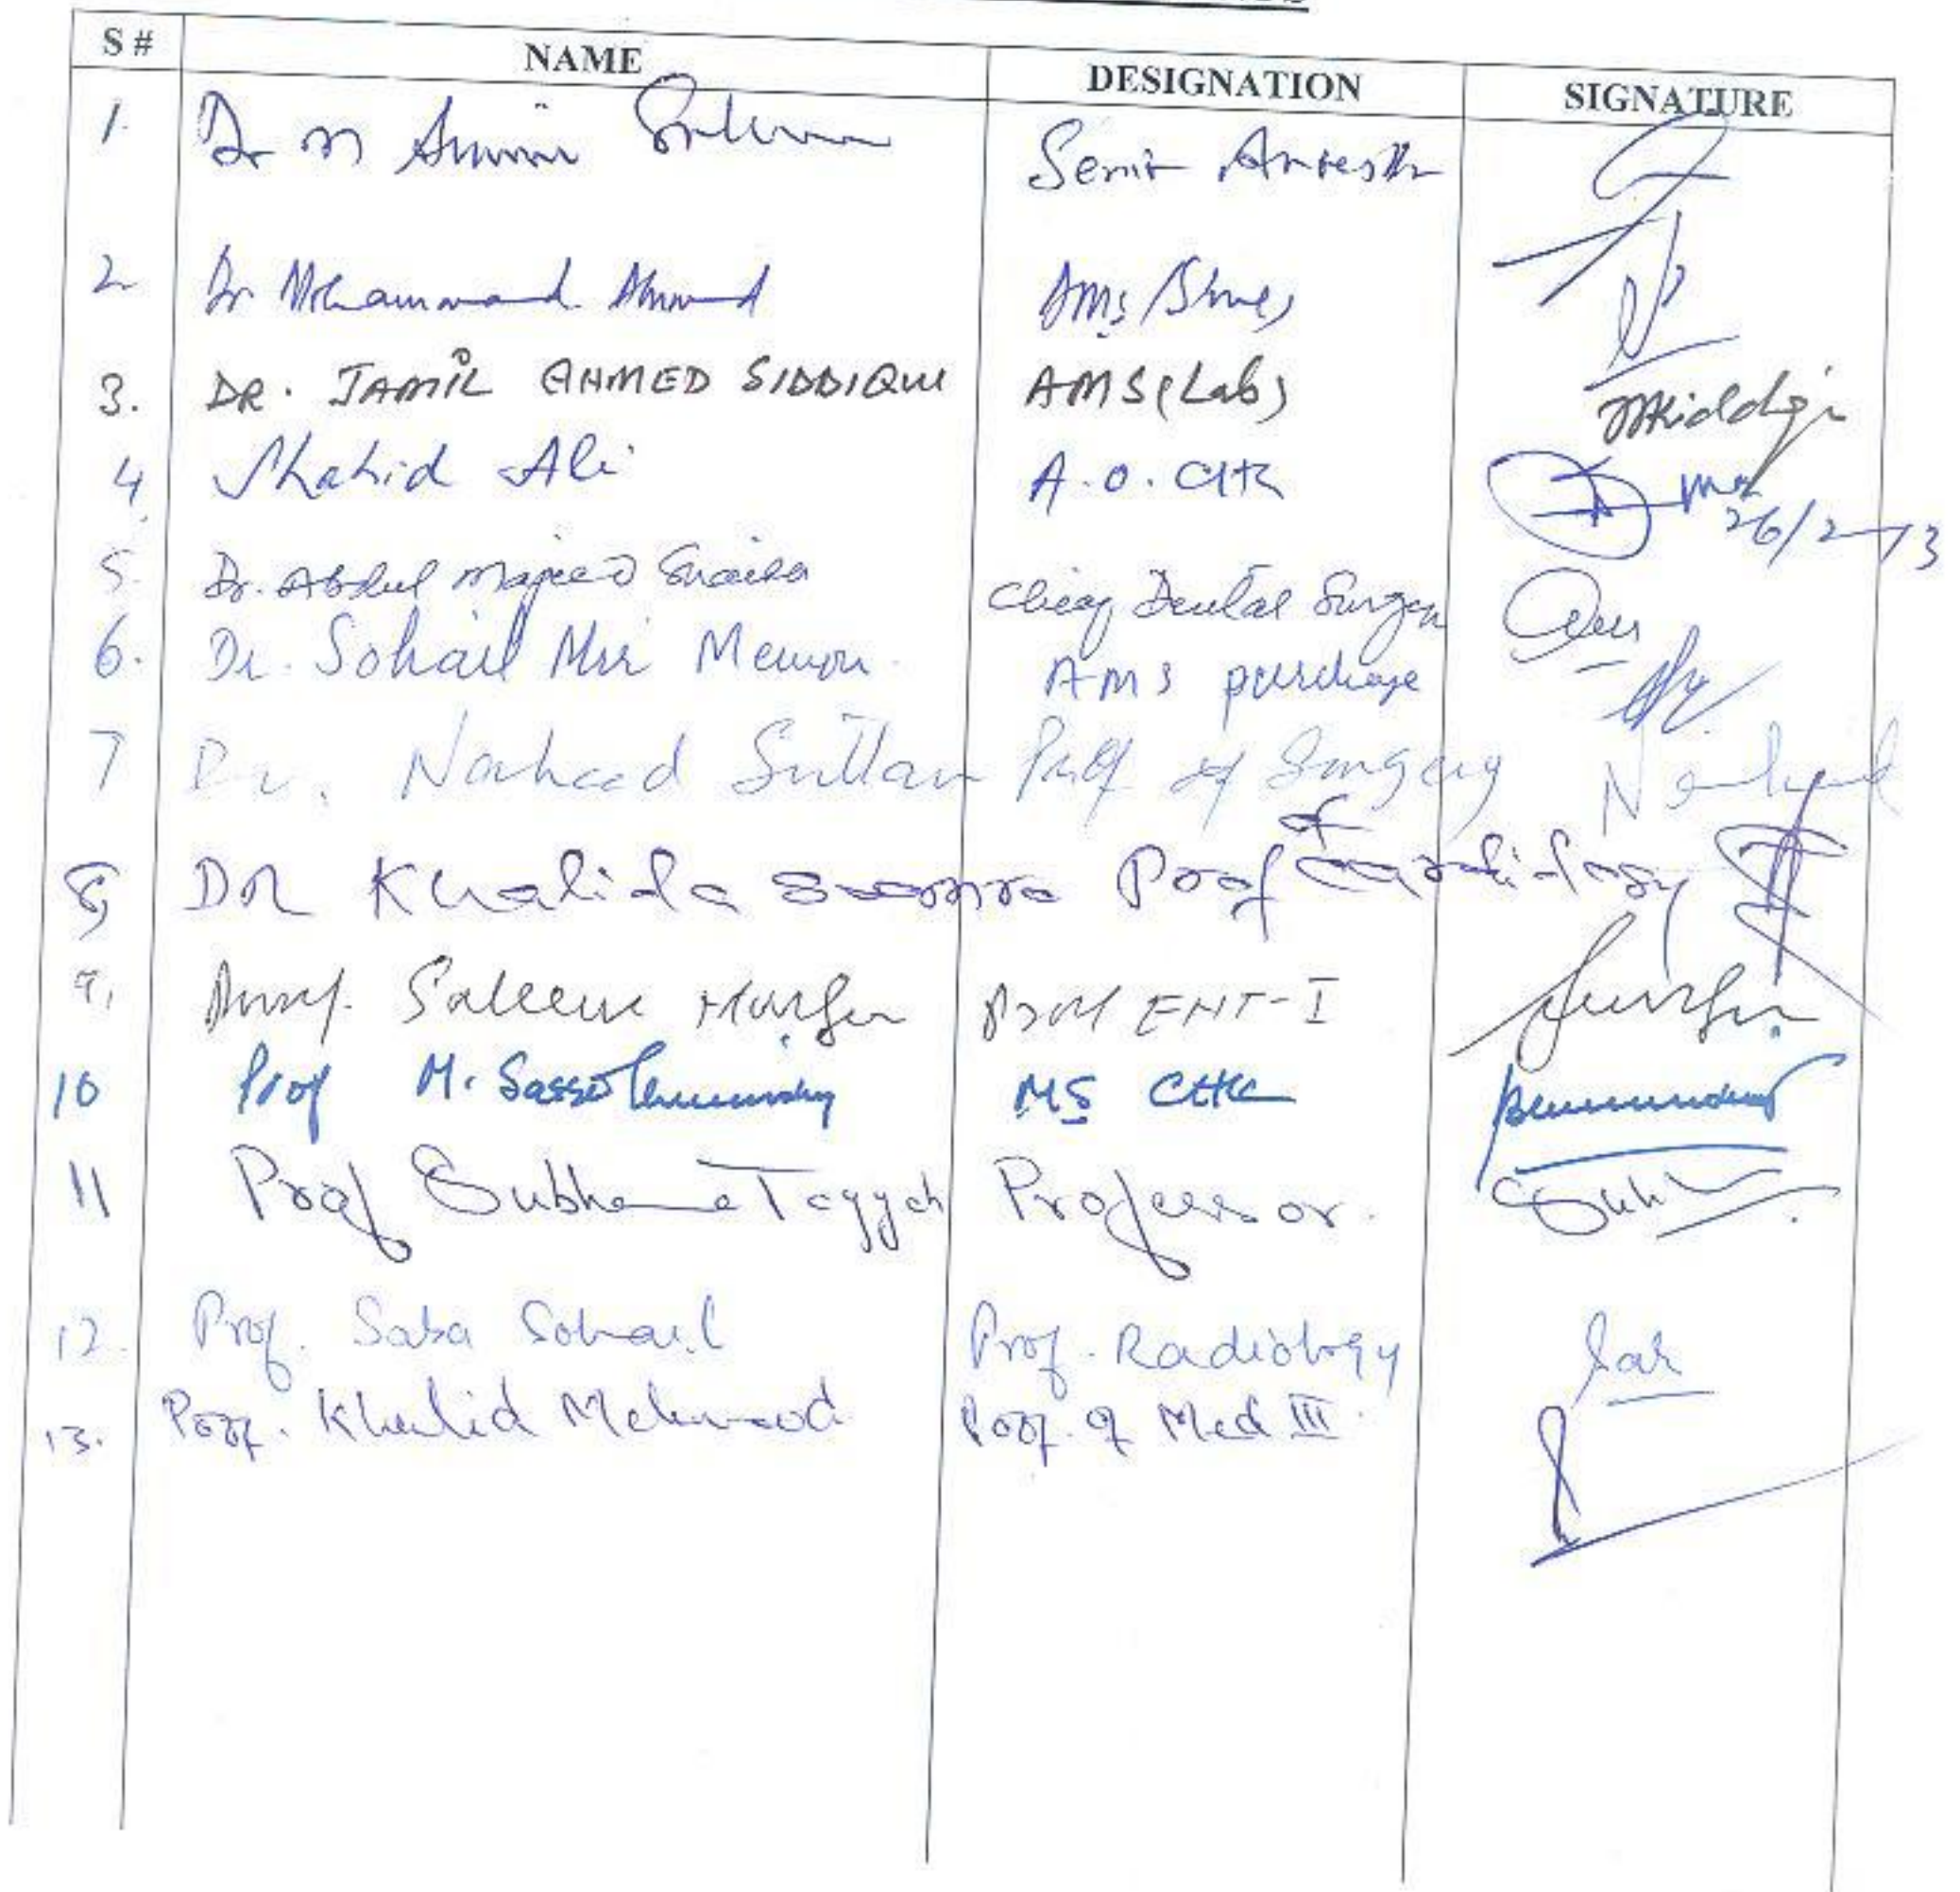 S # NAME DESIGNATION SIGNATURE
1. Dr M
2 Dr Mohammad Ahmed AMS/Stores
3. DR. JAMIL AHMED SIDDIQUI AMS(Lab)
4 Shahid Ali A.O. CHK
26/2-13
5. Dr. Abdul Majeed Chief Dental Surgeon
6. Dr. Sohail Mir Memon AMS purchase
7 Dr. Naheed Sultan Prof of Surgery Naheed
8 DR Khalida Soomro Prof of Cardiology
9, Prof. Saleem Marfani Prof ENT-I
10 Prof M. MS CHK
11 Prof Subhana Tayyab Professor.
12. Prof. Saba Sohail Prof. Radiology
13. Prof. Khalid Mehmood Prof. of Med III